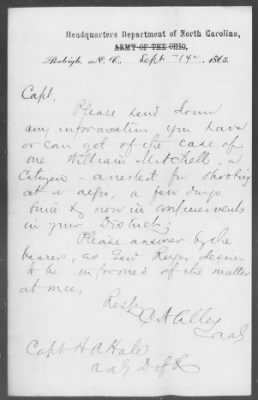 Headquarters Department of North Carolina,
ARMY OF THE OHIO,
Raleigh N. C. Sept 14th 1865.
Capt.
Please send down
any information you have
or can get of the case of
one William Mitchell, a
Citizen - arrested for shooting
at a negro, a few days
since & now in confinement
in your District;
Please answer by the
bearer, as Genl Ruger desires
to be informed of the matter
at once,
Resp
C A Cilley
aag
Capt H A Hale
aag